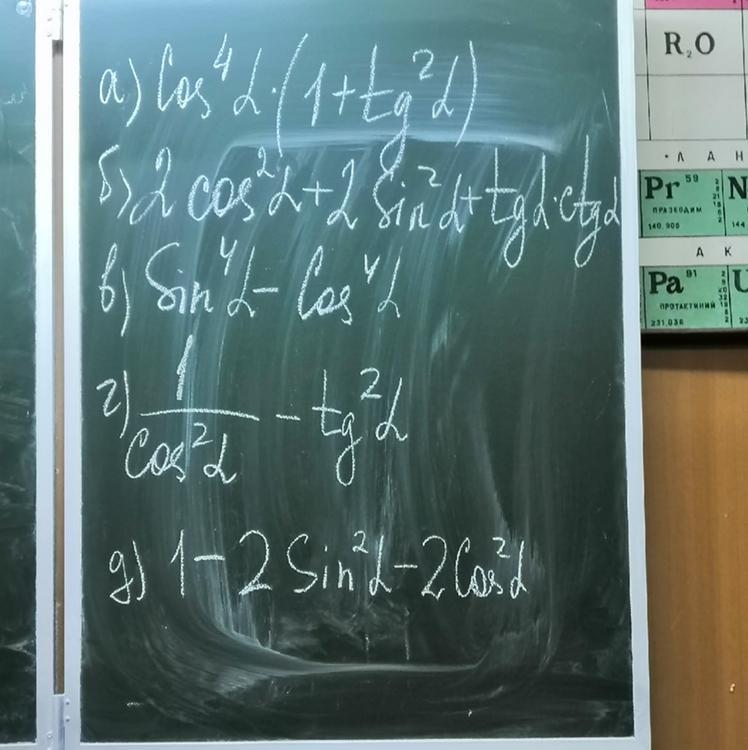 а) Cos⁴α·(1+tg²α)
б) 2 cos²α+2 Sin²α+tgα·ctgα
в) Sin⁴α - Cos⁴α
г) 1/Cos²α - tg²α
д) 1-2 Sin²α-2Cos²α
R₂O
• Л А Н
Pr 59 N
ПРАЗЕОДИМ
140,908 144
А К
Pa 91 U
ПРОТАКТИНИЙ
231,036 23